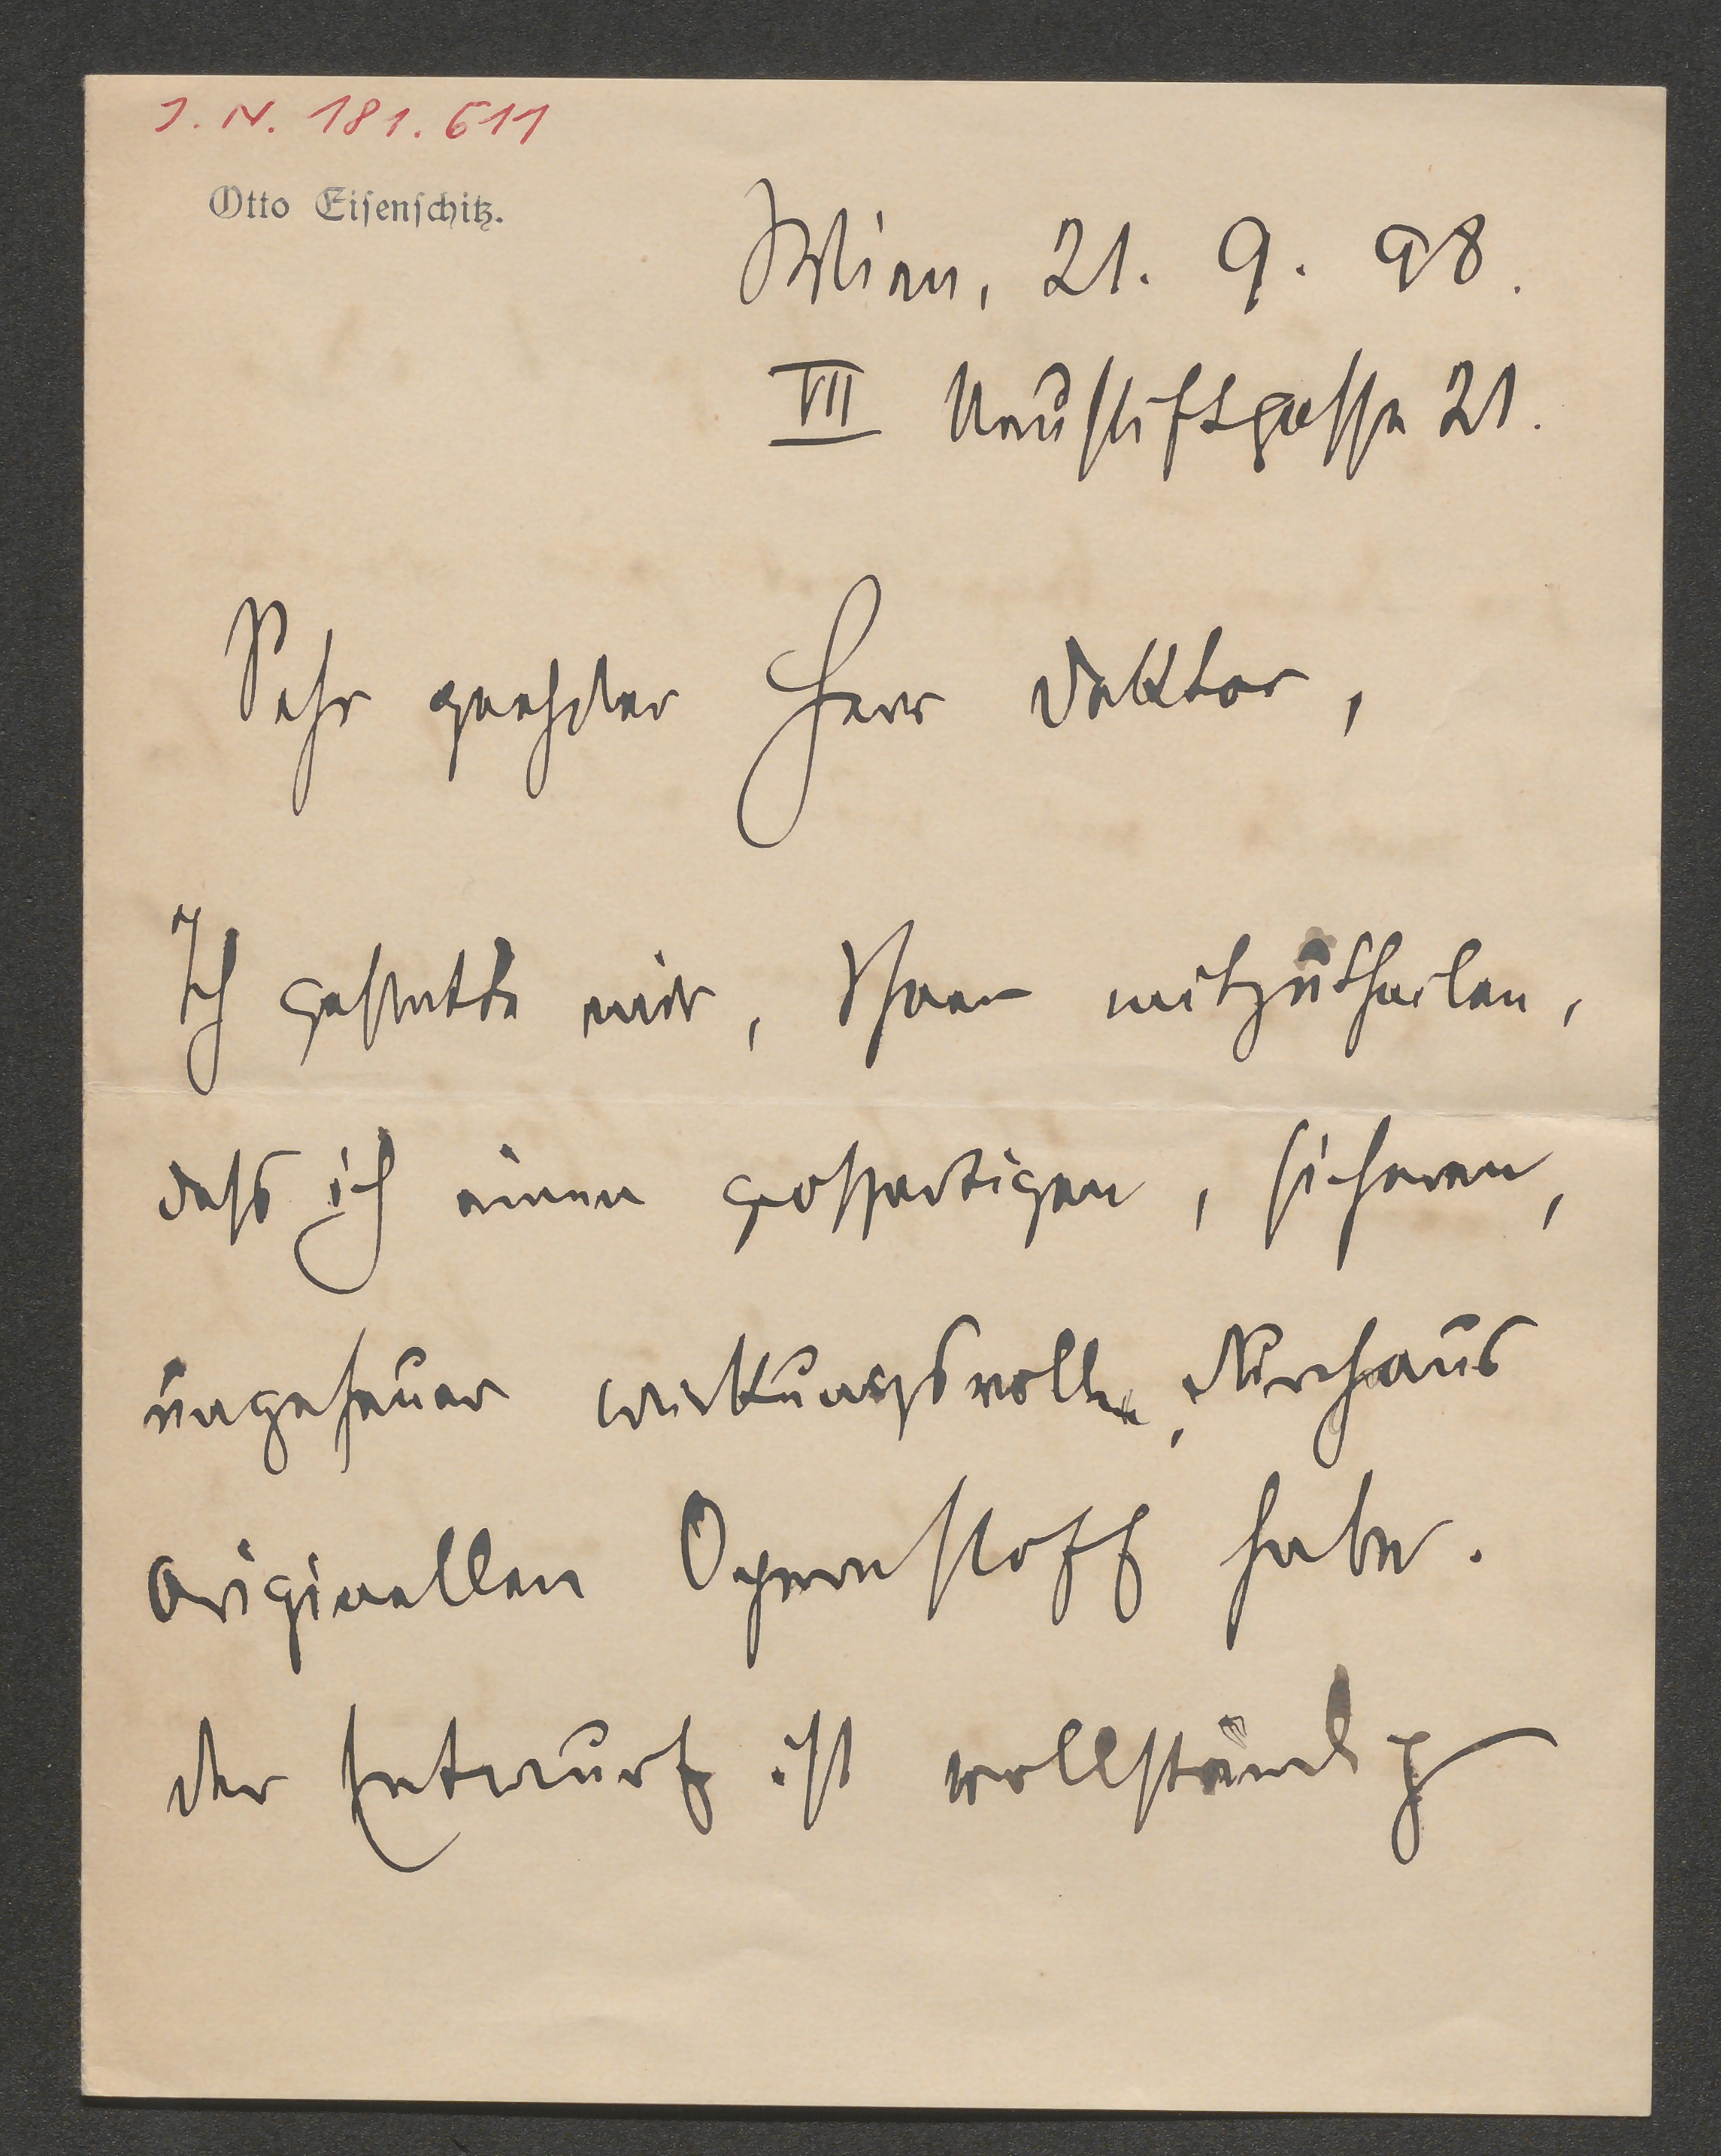 I. N. 181.611
Otto Eisenschitz.
Wien, 21. 9. 98.
VII Neustiftgasse 21.
Sehr geehrter Herr Doktor,
Ich gestatte mir, Ihnen mitzutheilen,
dass ich einen grossartigen, sicheren,
ungeheuer wirkungsvollen, durchaus
originellen Opernstoff habe.
Der Entwurf ist vollständig